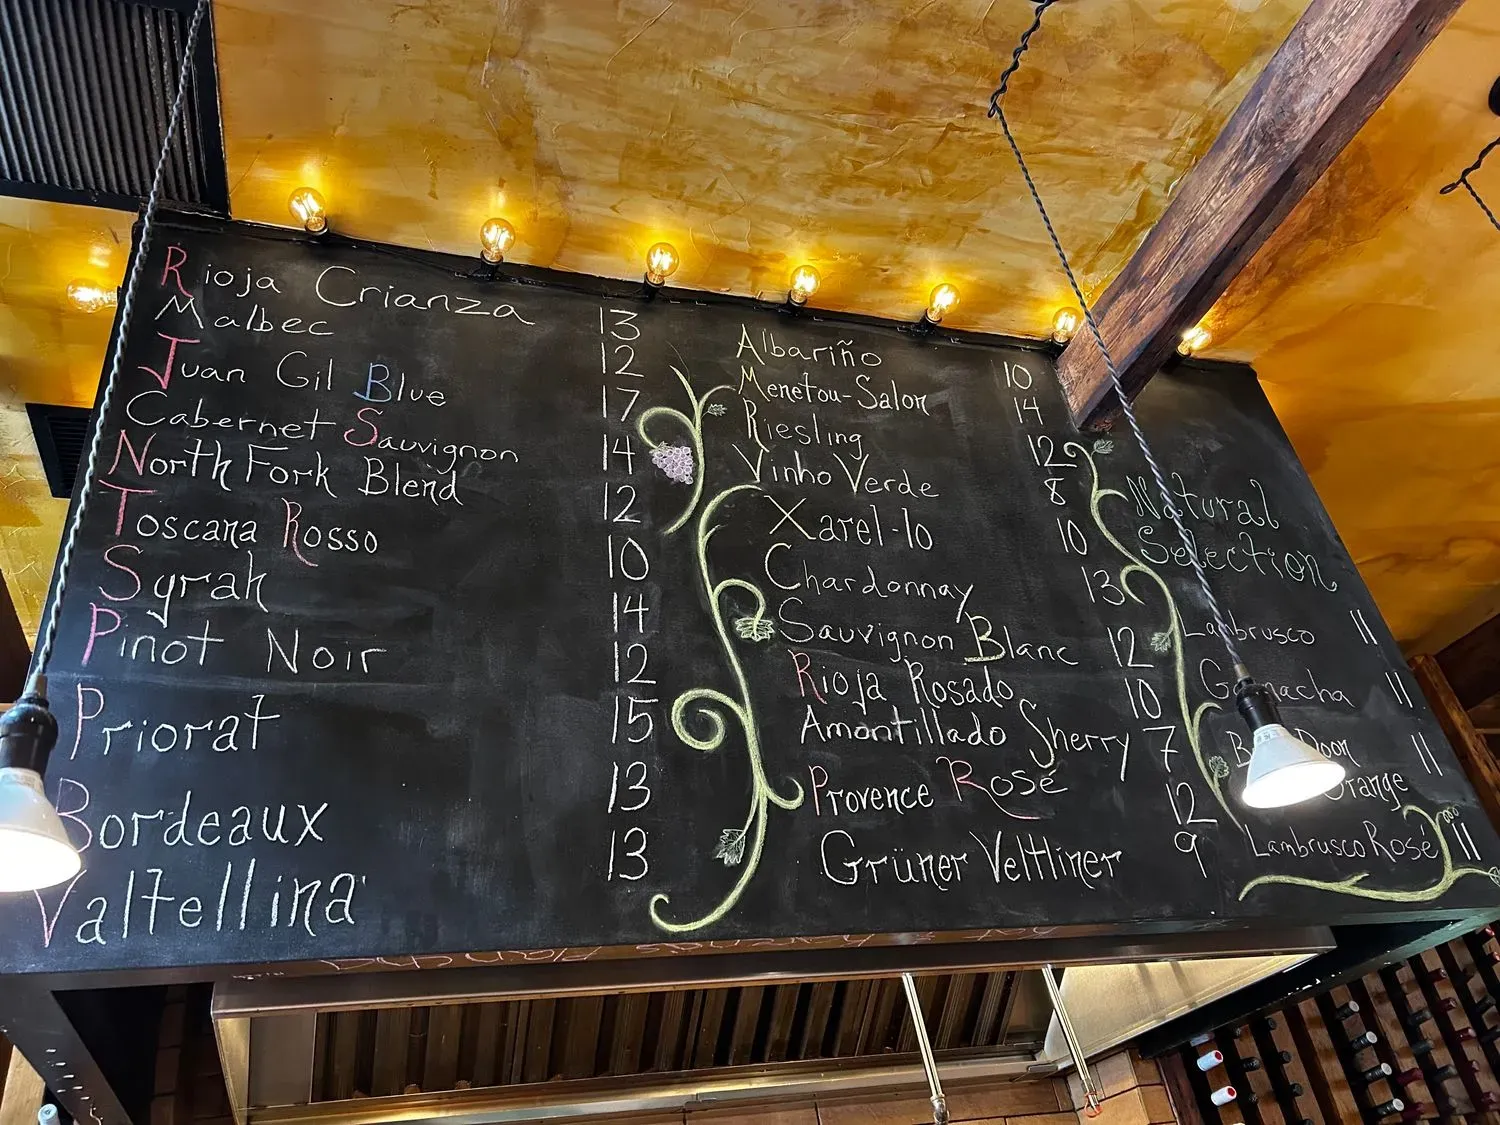 Rioja Crianza 13
Malbec 12
Juan Gil Blue 17
Cabernet Sauvignon 14
North Fork Blend 12
Toscana Rosso 10
Syrah 14
Pinot Noir 12
Priorat 15
Bordeaux 13
Valtellina 13
Albariño 10
Menetou-Salon 14
Riesling 12
Vinho Verde 8
Xarel-lo 10
Chardonnay 13
Sauvignon Blanc 12
Rioja Rosado 10
Amontillado Sherry 7
Provence Rosé 12
Grüner Veltliner 9
Natural
Selection
Lambrusco 11
Garnacha 11
Door 11
Orange
Lambrusco Rosé 11